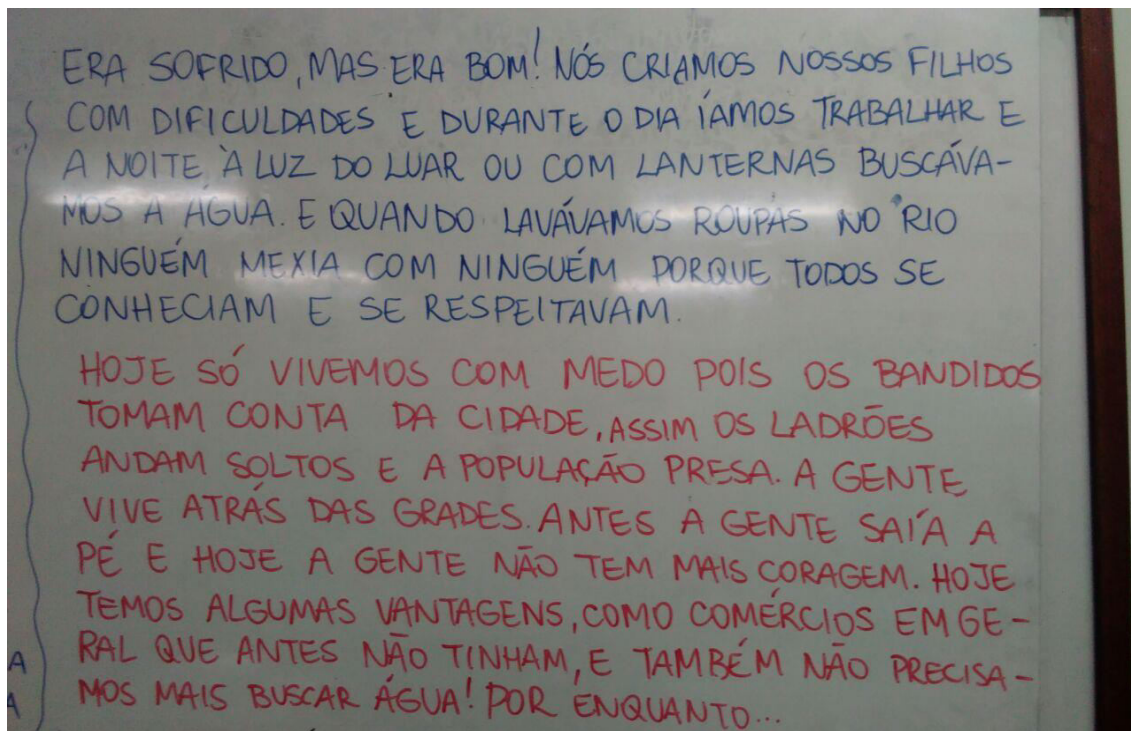 ERA SOFRIDO, MAS ERA BOM! NÓS CRIAMOS NOSSOS FILHOS
COM DIFICULDADES E DURANTE O DIA ÍAMOS TRABALHAR E
A NOITE, À LUZ DO LUAR OU COM LANTERNAS BUSCÁVA-
MOS A ÁGUA. E QUANDO LAVÁVAMOS ROUPAS NO RIO
NINGUÉM MEXIA COM NINGUÉM PORQUE TODOS SE
CONHECIAM E SE RESPEITAVAM.
HOJE SÓ VIVEMOS COM MEDO POIS OS BANDIDOS
TOMAM CONTA DA CIDADE, ASSIM OS LADRÕES
ANDAM SOLTOS E A POPULAÇÃO PRESA. A GENTE
VIVE ATRÁS DAS GRADES. ANTES A GENTE SAÍA A
PÉ E HOJE A GENTE NÃO TEM MAIS CORAGEM. HOJE
TEMOS ALGUMAS VANTAGENS, COMO COMÉRCIOS EM GE-
RAL QUE ANTES NÃO TINHAM, E TAMBÉM NÃO PRECISA-
MOS MAIS BUSCAR ÁGUA! POR ENQUANTO...
A
A